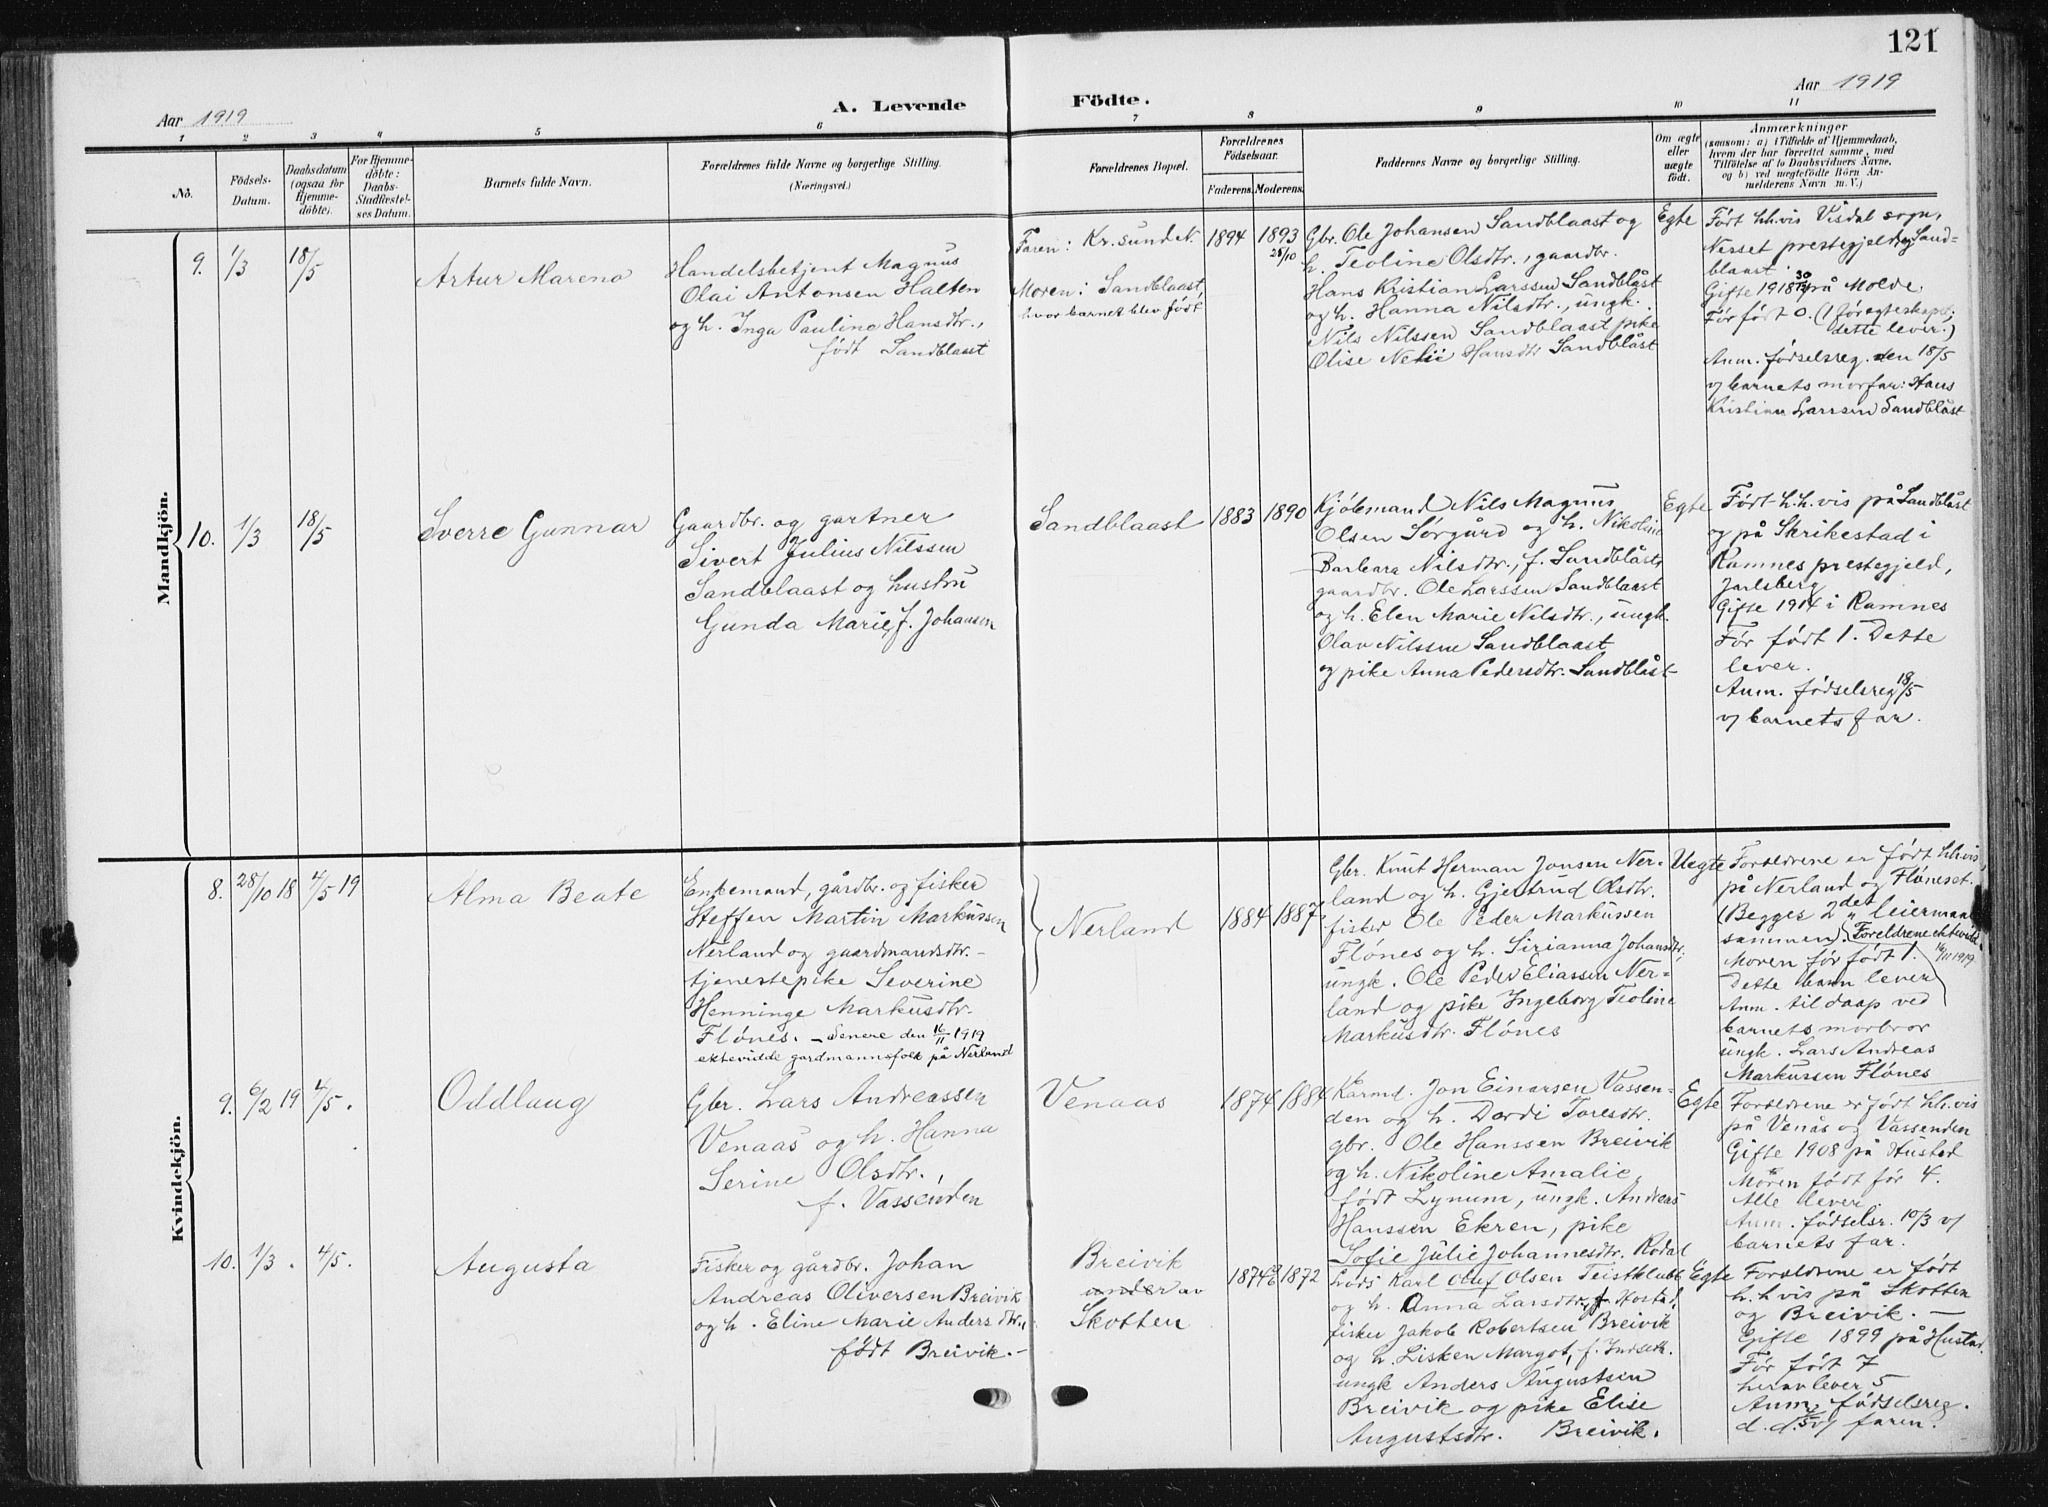 121
Aar 1919
A. Levende Födte.
Aar 1919
1 2 3 4 5 6 7 8 9 10 11
No.
Födsels-
Datum.
Daabsdatum
(ogsaa for
Hjemme-
döbte).
For Hjemme-
döbte:
Daabs-
Stadfæstel-
ses Datum.
Barnets fulde Navn.
Forældrenes fulde Navne og borgerlige Stilling.
(Næringsvei.)
Forældrenes Bopæl.
Forældrenes
Födselsaar.
Faderens. Moderens.
Faddernes Navne og borgerlige Stilling.
Om ægte
eller
uægte
født.
Anmærkninger
(saasom: a) i Tilfælde af Hjemmedaab,
hvem der har forrettet samme, med
Tilföielse af to Daabsvidners Navne,
og b) ved uægtefödte Börn An-
melderens Navn m. V.)
Mandkjön.
9. 1/3 18/5
Artur Mareno
Handelsbetjent Magnus
Olai Antonsen Halten
og h. Inga Pauline Hansdtr.,
født Sandblaast
Faren: Kr.sund N.
Moren: Sandblaast,
hvor barnet blev født
1894 1893
25/10
Gbr. Ole Johansen Sandblaast og
h. Teoline Olsdtr., gaardbr.
Hans Kristian Larssen Sandblåst
og h. Hanna Nilsdtr., ungk.
Nils Nilssen Sandblaast pike
Olise Hansdtr Sandblåst
Egte
Født hh.vis Visdal sogn,
Nesset prestegjeld og Sand-
blaast.
Gifte 1918 30/12 på Molde.
Før født 0. (1 før egteskapet;
dette lever.)
Anm. fødselsreg. den 18/5
v/ barnets morfar: Hans
Kristian Larssen Sandblåst
10. 1/3 18/5
Sverre Gunnar
Gaardbr. og gartner
Sivert Julius Nilssen
Sandblaast og hustru
Gunda Marie, f. Johansen
Sandblaast
1883 1890
Kjøbmand Nils Magnus
Olsen Sørgård og h. Nikoline
Barbara Nilsdtr., f. Sandblåst,
gaardbr. Ole Larssen Sandblaast
og h. Elen Marie Nilsdtr., ungk.
Olav Nilssen Sandblaast
og pike Anna Pedersdtr. Sandblåst
Egte
Født h.h.vis på Sandblåst
og på Skrikestad i
Ramnes prestegjeld,
Jarlsberg
Gifte 1914 i Ramnes
Før født 1. Dette
lever.
Anm. fødselsreg 18/5
v/ barnets far.
Kvindekjön.
8. 28/10 18 4/5 19
Alma Beate
Enkemand, gårdbr. og fisker
Steffen Martin Markussen
Nerland og gaardmandsdtr.-
tjenestepike Severine
Henninge Markusdtr.
Flónes. – Senere den 16/11 1919
ektevidde gardmannsfolk på Nerland
Nerland
1884 1887
Gbr. Knut Herman Jonsen Ner-
land og h. Gjertrud Olsdtr.
fisker Ole Peder Markussen
Flónes og h. Sirianna Johansdtr.
ungk. Ole Peder Eliassen Ner-
land og pike Ingeborg Teoline
Markusdtr. Flónes
Uegte
Foreldrene er født hh.vis
på Nerland og Flóneset.
(Begges 2det leiermaal
sammen). Foreldrene ektevidd
16/11 1919
Moren før født 1.
Dette barn lever
Anm. til daap ved
barnets morbror
ungk. Lars Andreas
Markussen Flónes
9. 6/2 19 4/5.
Oddlaug
Gbr. Lars Andreassen
Venaas og h. Hanna
Serine Olsdtr.,
f. Vassenden
Venaas
1874 1884
Kårmd. Jon Einarsen Vassen-
den og h. Dordi Toresdtr.
gbr. Ole Hanssen Breivik
og h. Nikoline Amalie,
født Lynum, ungk. Andreas
Hanssen Ekren, pike
Sofie Julie Johannesdtr. Rødal
Egte
Foreldrene er født hh.vis
på Venås og Vassenden
Gifte 1908 på Hustad
Moren født før 4.
Alle lever.
Anm. fødselsr. 10/3 v/
barnets far.
10. 1/3. 4/5.
Augusta
Fisker og gårdbr. Johan
Andreas Oliversen Breivik
og h. Eline Marie Andersdtr.,
født Breivik.-
Breivik
under av
Skotten
1874 1872
Lods Karl Oluf Olsen Teistklubb
og h. Anna Larsdtr, f. Hostad,
fisker Jakob Robertsen Breivik
og h. Lisken Margot, f. Indseth.
ungk Anders Augustsen
Breivik og pike Elise
Augustsdtr. Breivik.
Egte
Foreldrene er født
h.hvis på Skotten
og Breivik. –
Gifte 1899 på Hustad.
Før født 7
herav lever 5
Anm. fødselsreg.
d. d. 4/5 v/ faren.